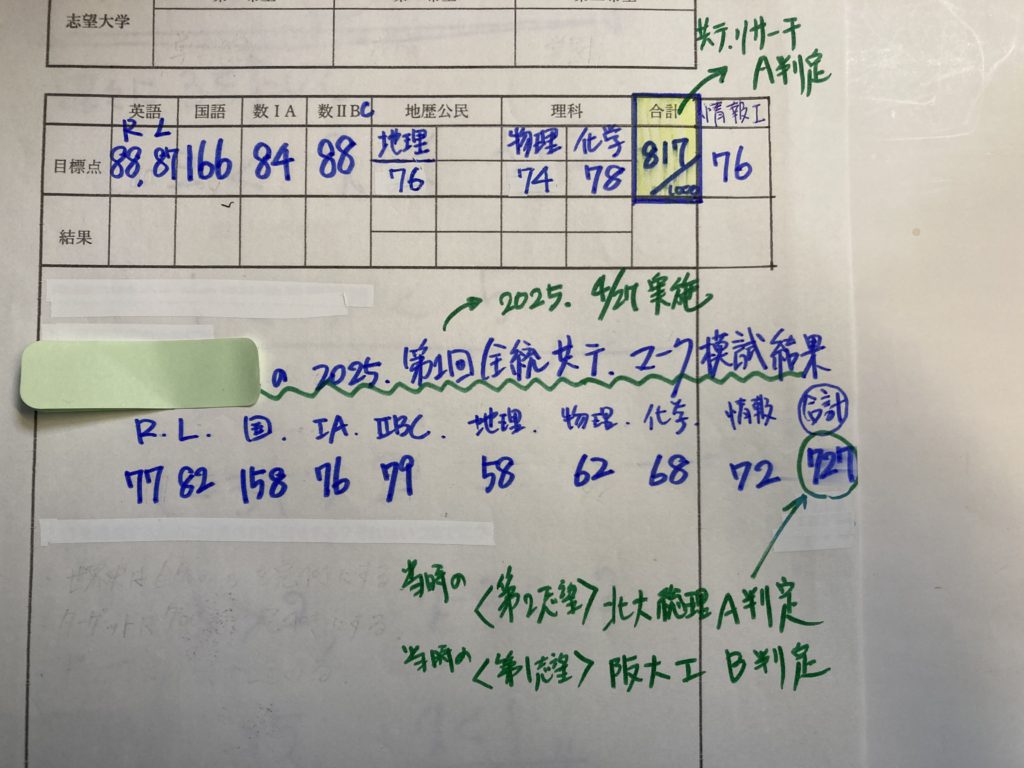 志望大学
共テ.リサーチ
A判定
英語 国語 数ⅠA 数ⅡBC 地歴公民 理科 合計 情報Ⅰ
R L 地理 物理 化学
目標点 88, 87 166 84 88 76 74 78 817/1000 76
結果
2025. 4/27 実施
の 2025. 第1回全統共テ. マーク模試結果
R. L. 国. ⅠA. ⅡBC. 地理. 物理. 化学. 情報 合計
77 82 158 76 79 58 62 68 72 727
当時の〈第2志望〉北大総理 A判定
当時の〈第1志望〉阪大工 B判定